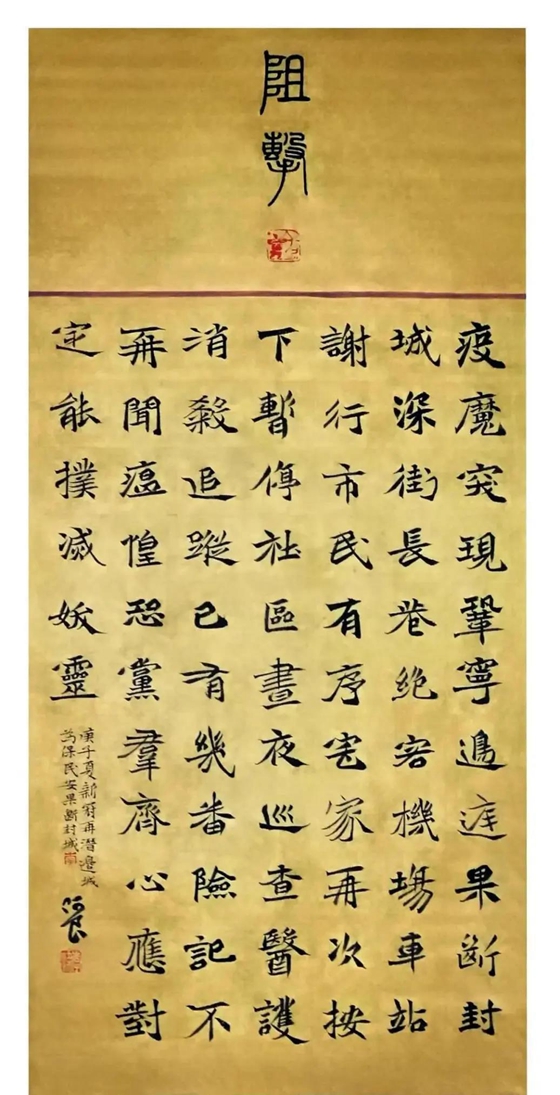 阻擊
疫魔突現鞏寧邊庭果斷封
城深街長巷絕客機場車站
謝行市民有序宅家再次按
下暫停社區晝夜巡查醫護
消殺追蹤已有幾番險記不
再聞瘟惶恐黨羣齊心應對
定能撲滅妖靈
庚子夏新冠再潛邊城
為保民安果斷封城